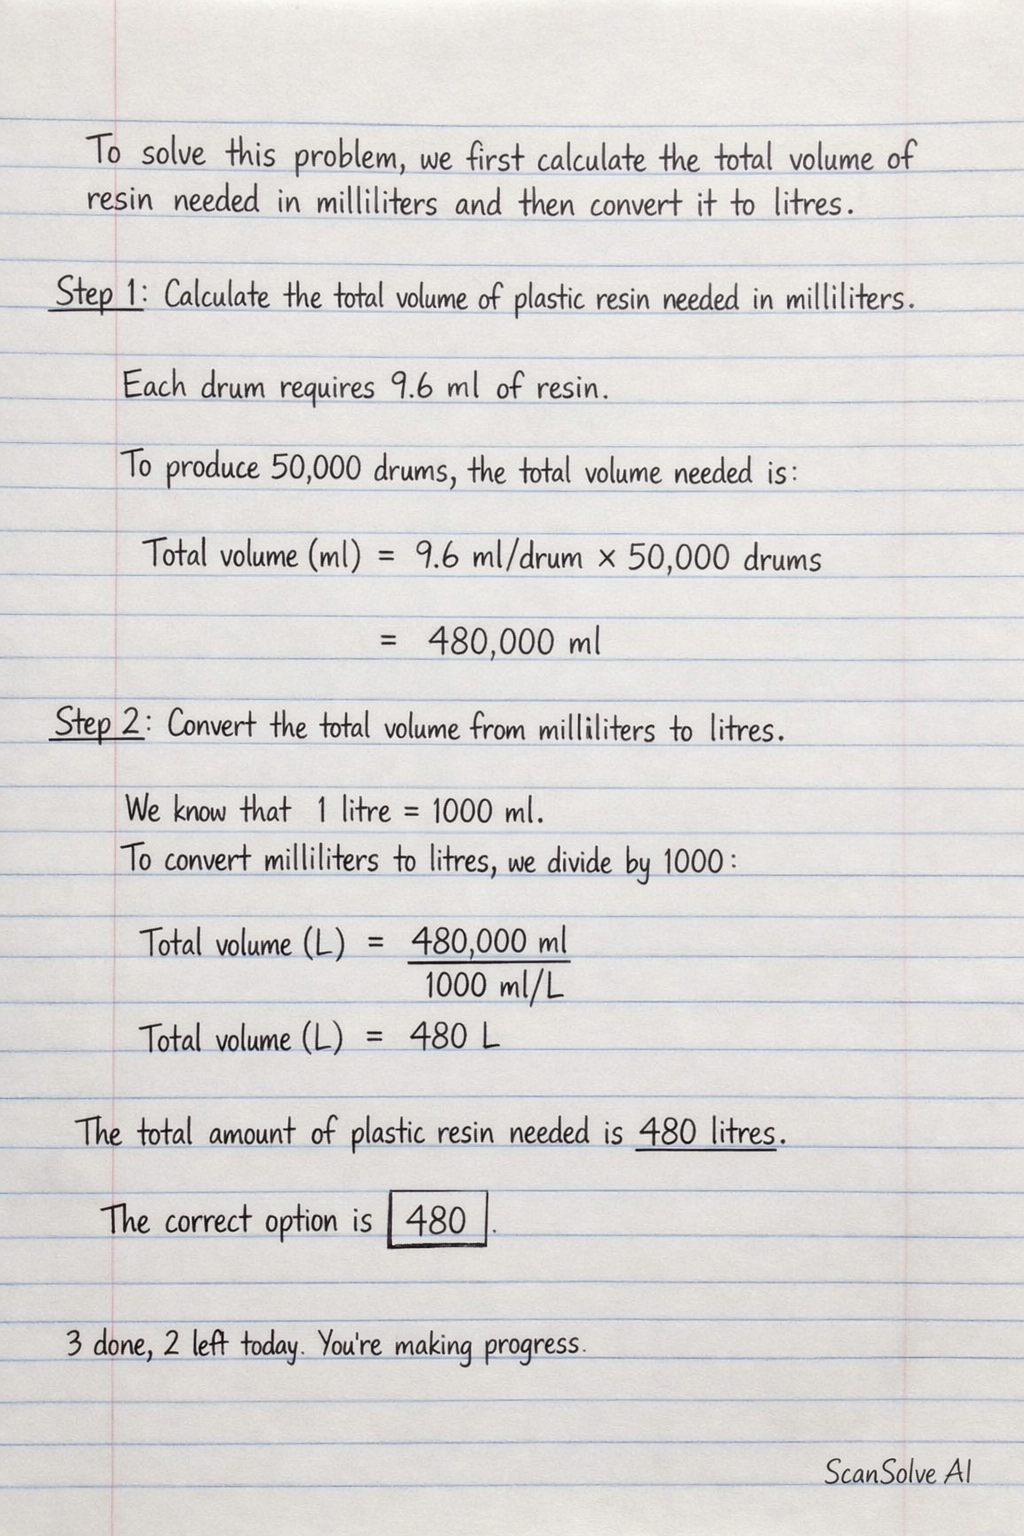 To solve this problem, we first calculate the total volume of
resin needed in milliliters and then convert it to litres.
Step 1: Calculate the total volume of plastic resin needed in milliliters.
Each drum requires 9.6 ml of resin.
To produce 50,000 drums, the total volume needed is:
Total volume (ml) = 9.6 ml/drum × 50,000 drums
= 480,000 ml
Step 2: Convert the total volume from milliliters to litres.
We know that 1 litre = 1000 ml.
To convert milliliters to litres, we divide by 1000:
Total volume (L) = 480,000 ml
1000 ml/L
Total volume (L) = 480 L
The total amount of plastic resin needed is 480 litres.
The correct option is 480.
3 done, 2 left today. You're making progress.
ScanSolve AI